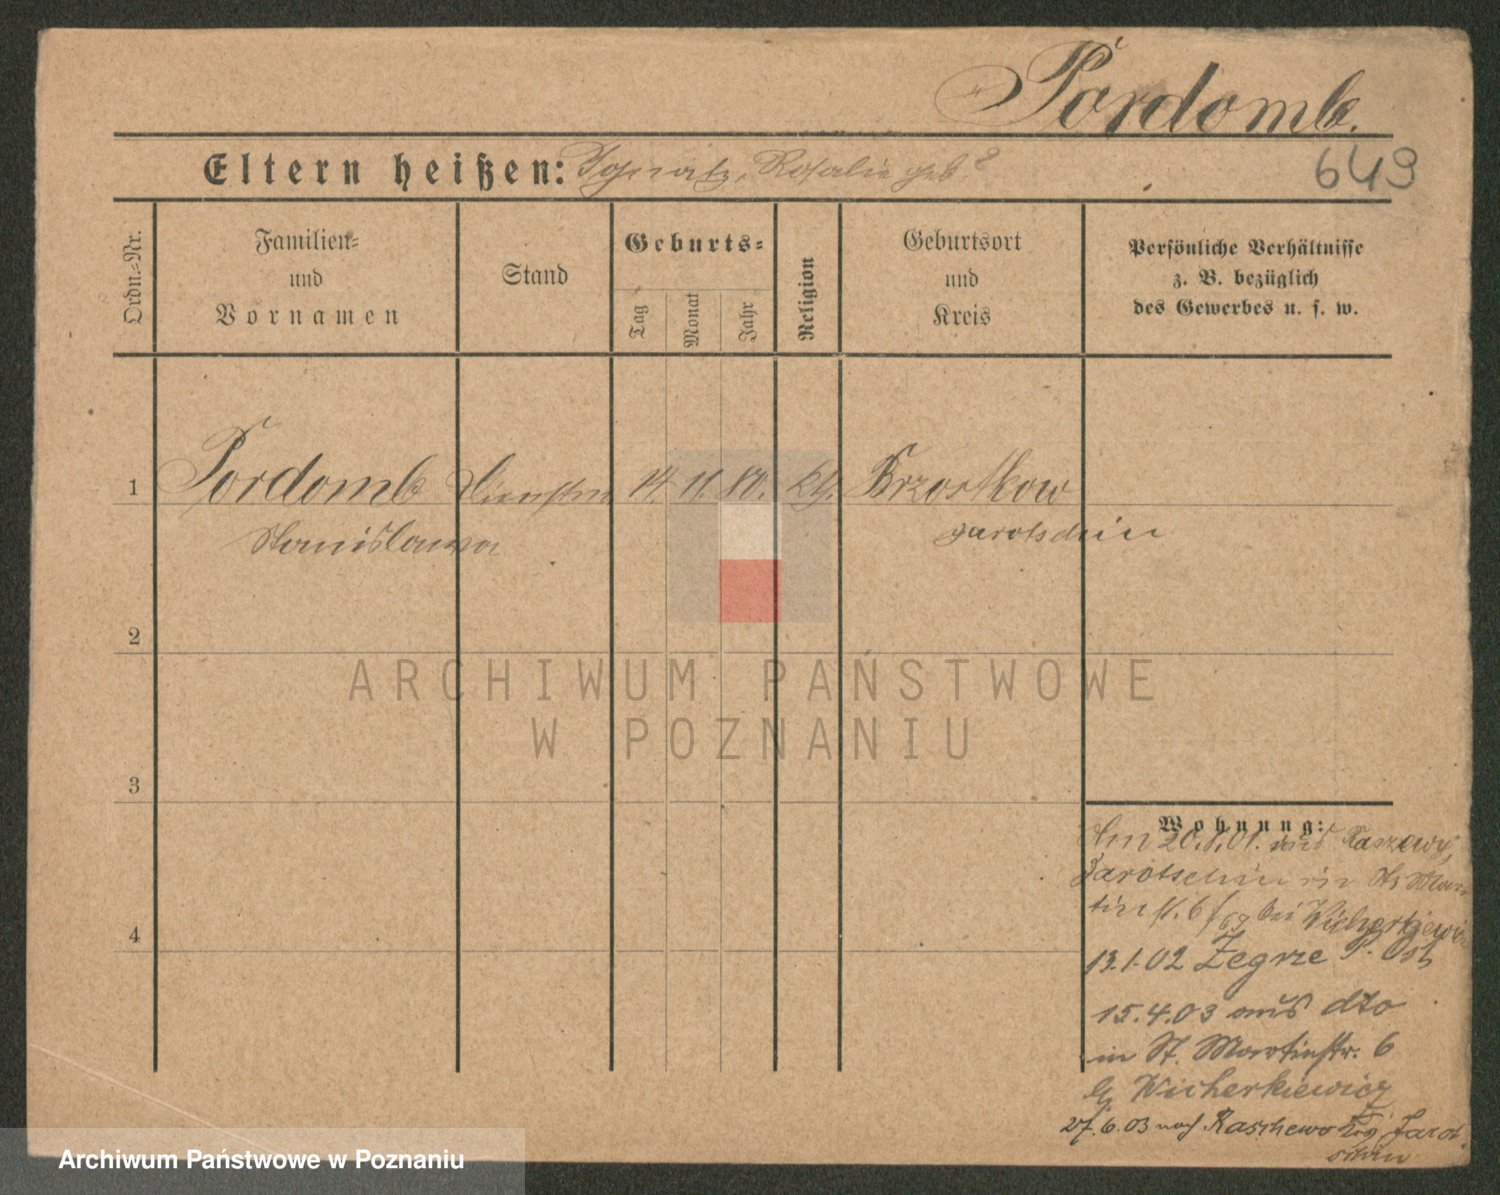 Pordomb.
Eltern heißen: Ignatz, Rosalie geb ?
649
Ordn.=Nr.
Familien=
und
Vornamen
Stand
Geburts=
Tag
Monat
Jahr
Religion
Geburtsort
und
Kreis
Persönliche Verhältnisse
z. B. bezüglich
des Gewerbes u. s. w.
1 Pordomb 14. 11. 80. Brzostkow
Stanislawa Jarotschin
2
ARCHIWUM PAŃSTWOWE
W POZNANIU
3
Wohnung:
Am 20.1.01. aus Raszewy,
Jarotschin in St Mar
tinst. 6 bei Wicherkiewicz
13.1.02 Zegrze P. Ost
4
15.4.03 aus dto
in St. Martinstr. 6
Wicherkiewicz
27.6.03 nach Raschewo Jarot
schin
Archiwum Państwowe w Poznaniu